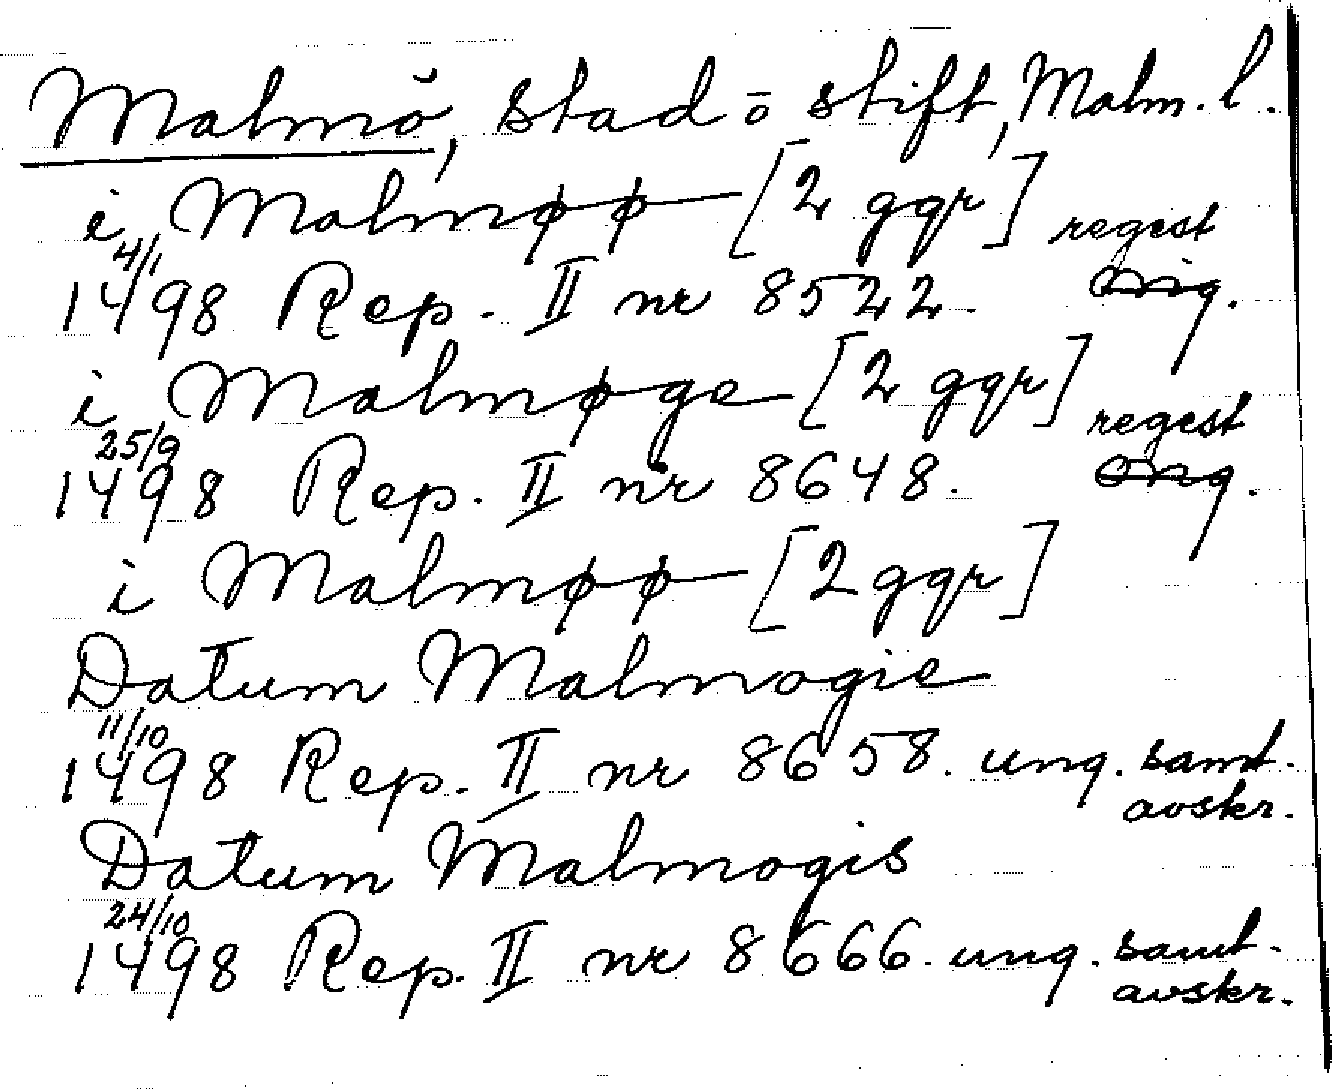 Malmö, stad o stift, Malm. l.
i Malmøø [2 ggr] regest
4/1
1498 Rep. II nr 8522. orig.
i Malmøge [2 ggr] regest
25/9
1498 Rep. II nr 8648. orig.
i Malmøø [2 ggr]
Datum Malmogie
11/10
1498 Rep. II nr 8658. ung. samt.
avskr.
Datum Malmogis
24/10
1498 Rep. II nr 8666. ung. samt.
avskr.